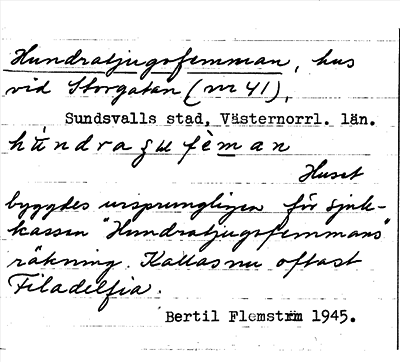 Hundratjugofemman, hus
vid Storgatan (nr 41),
Sundsvalls stad, Västernorrl. län.
hùndraʒufèman
Huset
byggdes ursprungligen för sjuk-
kassan "Hundratjugofemmans"
räkning. Kallas nu oftast
Filadelfia.
Bertil Flemström 1945.